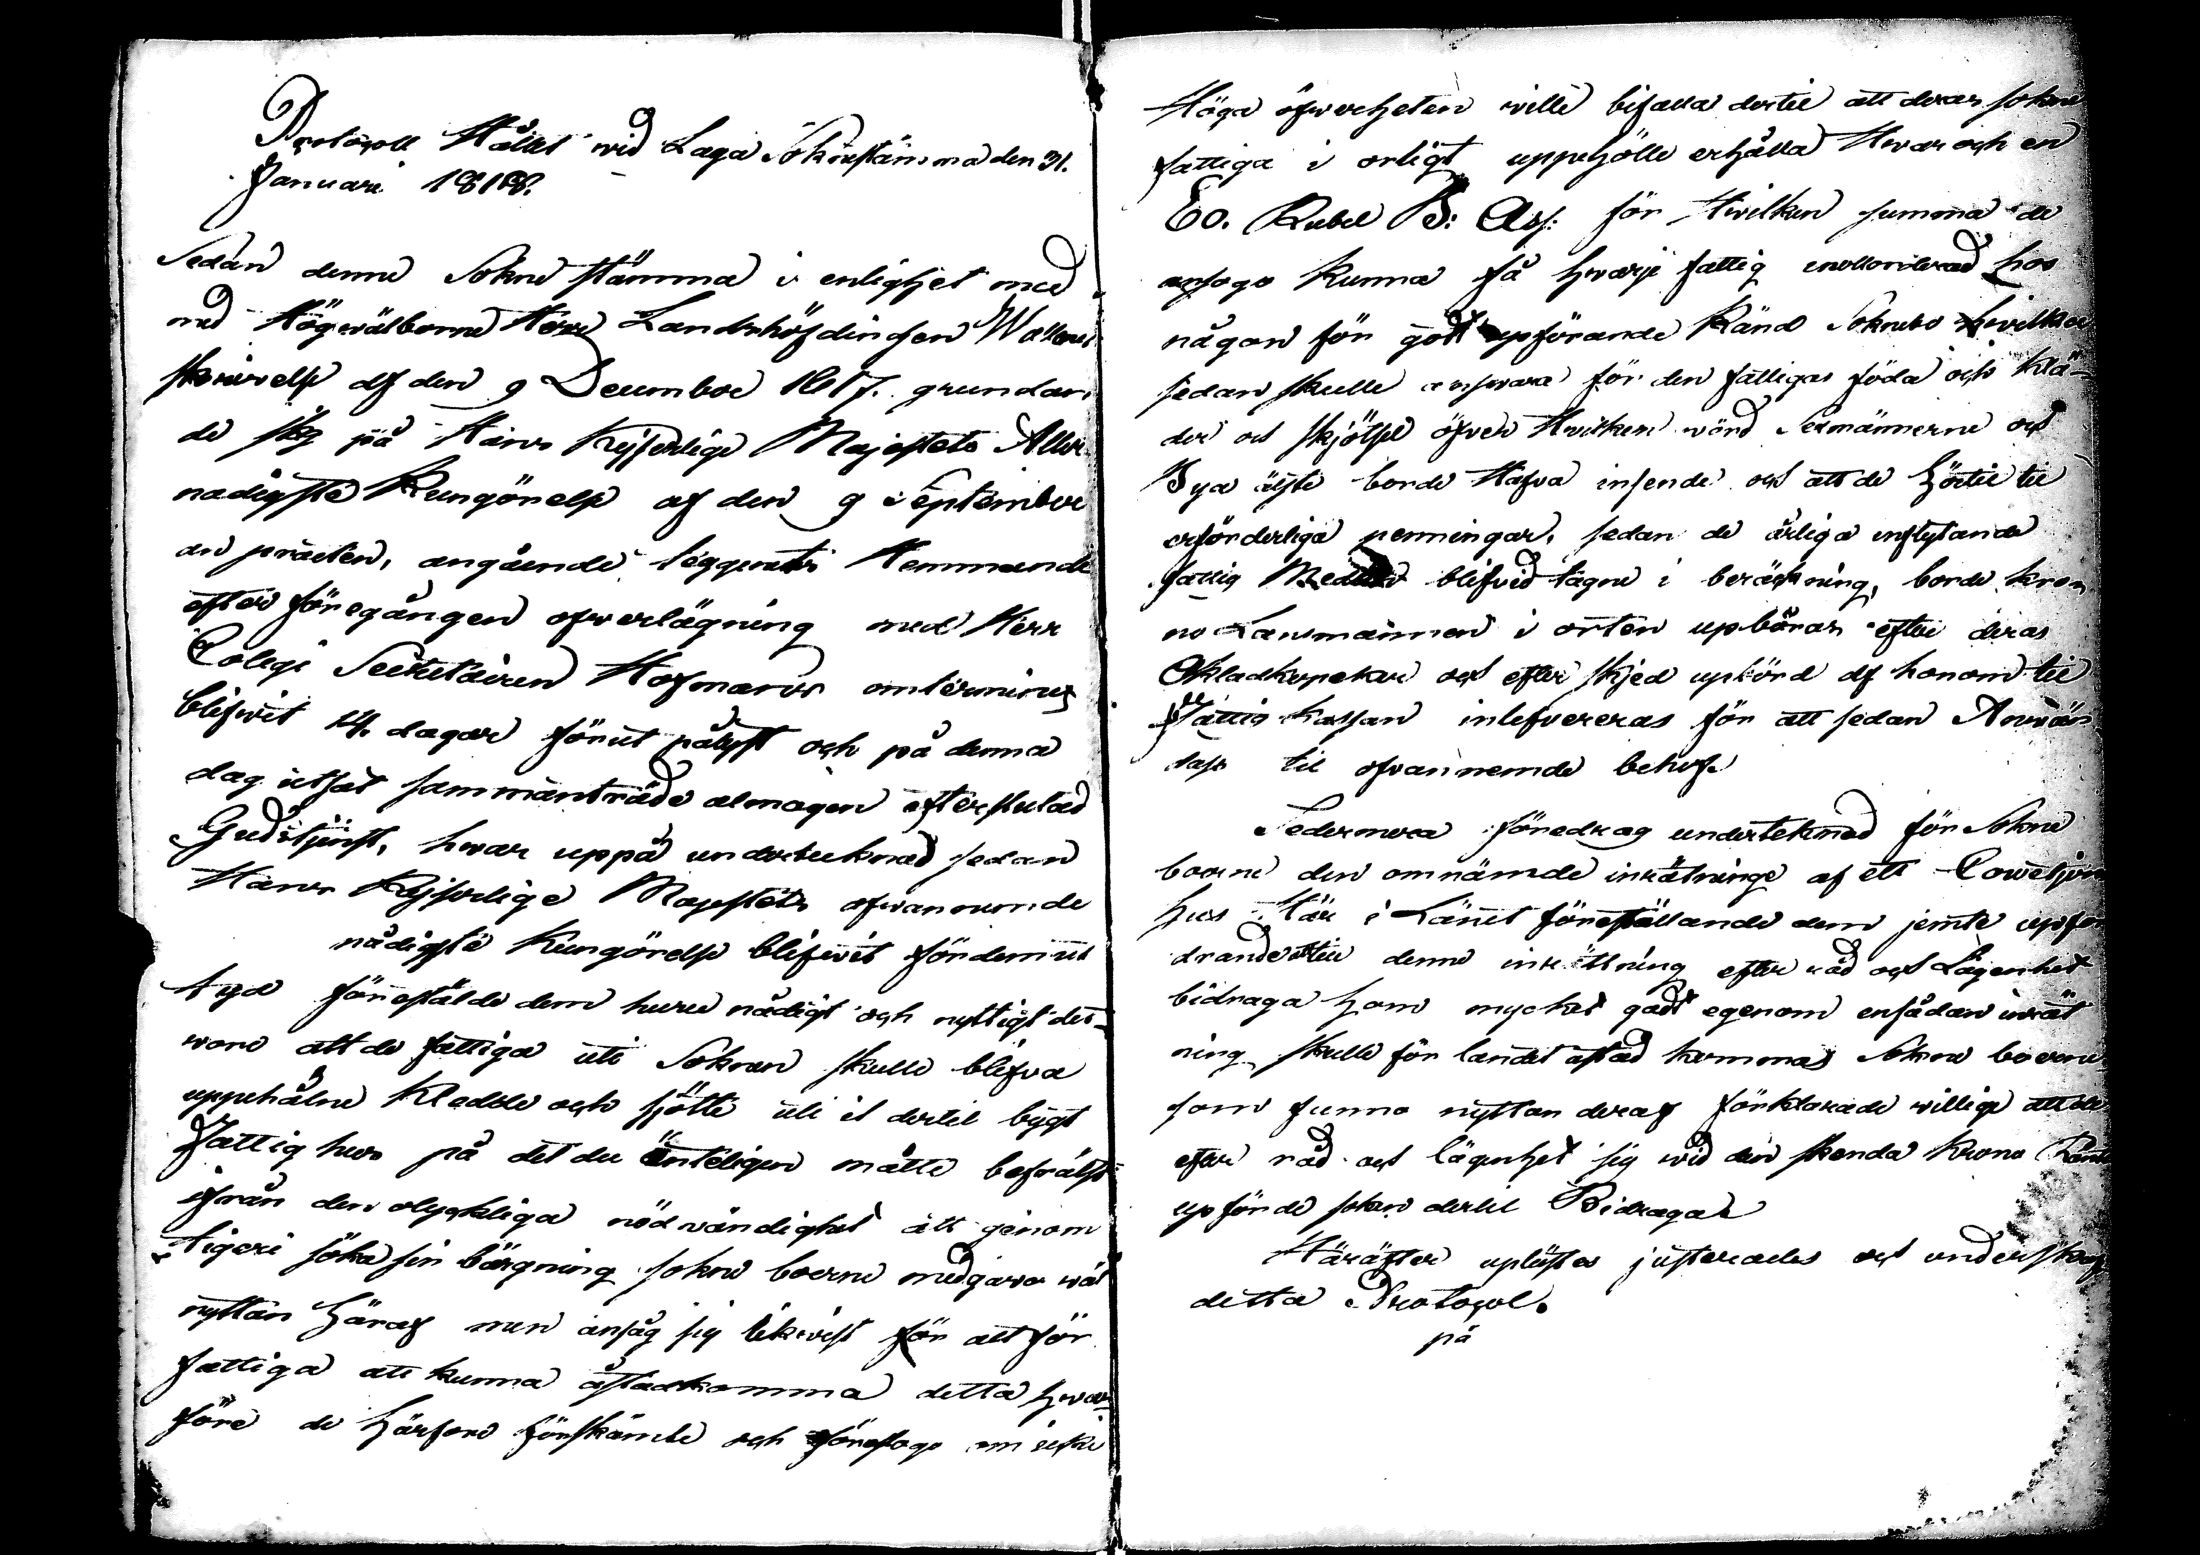 Protocoll Hållit wid Laga Sokne stämma den 31.
Januari 1818.
Sedan denne Sokne stämma i enlighet med
med Högwälborne Herr Landshöfdingen Walleens
skrivelse af den 9 December 1817. grundan
de sig på Hans Kejserlige Majestets Aller
nådigste Kungörelse af den 9 September
angående Hemmande
efter föregången öfverlägning med Herr
Colegi Secretairen Hofmans om terminus
blifwit 14. dagar förut pålyst och på denna
dag utsat sammanträde almogen efter slutad
Gudstjenst, hwar uppå undertecknad sedan
Hans Kejserlige Majestets ofwannemde
nådigste Kungörelse blifwit för dem ut
tyd föreställde dem huru nådigt och nyttigt det
wore att de fattiga uti Soknen skulle blifva
uppehålne Kledde och sjötte uti et dertil bygt
Fattig hus på det de änteligen måtte befrälsas
ifrån den olyckliga nödwändighet att genom
tigeri söka sin bärgning sokne boerne medgawo wäl
nyttan häraf men ansåg sig likwist för att för
fattiga att kunna åstadkomma detta hwar
före de härföre och föreslogo om icke
Höga öfwerheten wille bifalla dertil att deras sokne
fattiga i årligt uppehölle erhålla Hwar och en
60. Rubel B: Ass: för Hwilken summa de
ansågo Kunna få hwarje fattig inackorderad hos
någon för godt upförande Känd Soknebo hwilken
sedan skulle answara för den fattigas föda och Klä-
der och skjötsel öfver Hwilken wård Sexmännerne och
Bya älste borde Hafva inseende och att de härtil
erforderliga penningar, sedan de årliga inflytande
fattig Medel blifvid tagne i beräkning, borde Kro
no Länsmannen i orten upbäras efter deras
Okladkopekar och efter skjed upbörd af honom til
Fattig Kassan inlefvereras för att sedan Anwän
das til ofvannemde behof.
Ledermera föredrag undertecknad för Sokne
boerne den omnämde inrätninge af ett
hus Här i Länet föreställande dem jemte upfo
drande til denne inrättning efter råd och Lägenhet
bidraga hwar mycket godt genom en sådan inrät
ning skulle för landet åstad kommas Sokne boerne
som funno nyttan deraf förklarade willige att de
efter råd och lägenhet sig wid den skenda Krono
upförde sokn dertil Bidraga
Häräfter uplästes justerades och underskref
detta Protocol.
på